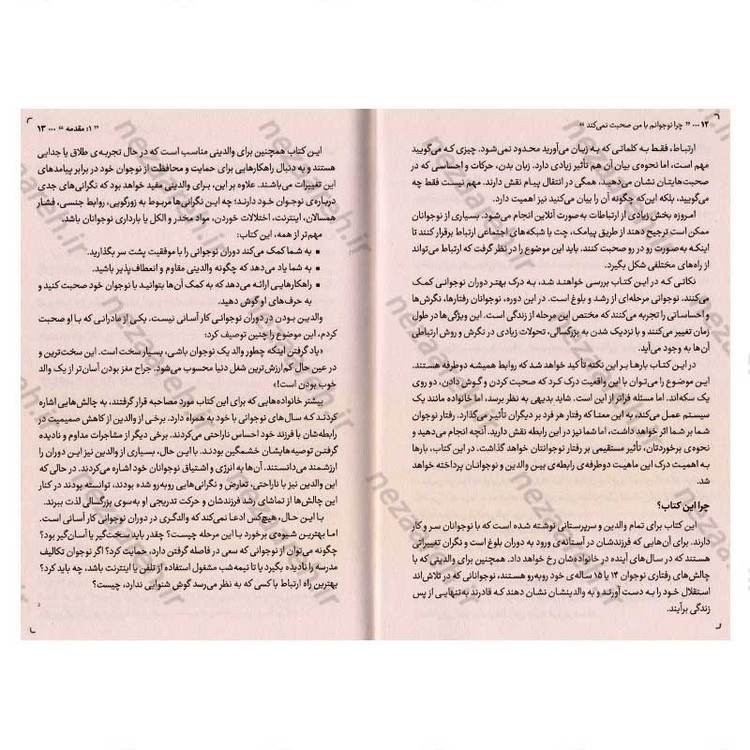 ۱۲ ... " چرا نوجوانم با من صحبت نمی‌کند "
ارتباط، فقط به کلماتی که به زبان می‌آورید محدود نمی‌شود. چیزی که می‌گویید
مهم است، اما نحوه‌ی بیان آن هم تأثیر زیادی دارد. زبان بدن، حرکات و احساسی که در
صحبت‌هایتان نشان می‌دهید، همگی در انتقال پیام نقش دارند. مهم نیست فقط چه
می‌گویید، بلکه این‌که چگونه آن را بیان می‌کنید نیز اهمیت دارد.
امروزه بخش زیادی از ارتباطات به‌صورت آنلاین انجام می‌شود. بسیاری از نوجوانان
ممکن است ترجیح دهند از طریق پیامک، چت یا شبکه‌های اجتماعی ارتباط برقرار کنند تا
اینکه به‌صورت رو در رو صحبت کنند. باید این موضوع را در نظر گرفت که ارتباط می‌تواند
از راه‌های مختلفی شکل بگیرد.
نکاتی کـه در ایـن کتـاب بررسی خواهنـد شـد، بـه درک بهتر دوران نوجوانی کمک
می‌کنند. نوجوانی مرحله‌ای از رشد و بلوغ است. در این دوره، نوجوانان رفتارها، نگرش‌ها
و احساساتی را تجربه می‌کنند که مختص این مرحله از زندگی است. این ویژگی‌ها در طول
زمان تغییر می‌کنند و با نزدیک شدن به بزرگسالی، تحولات زیادی در نگرش و روش ارتباطی
آن‌ها به وجود می‌آید.
در ایـن کتـاب بارهـا بـر این نکته تأکید خواهد شد که روابط همیشه دوطرفه هستند.
این موضوع را می‌توان با این واقعیت درک کرد که صحبت کردن و گوش دادن، دو روی
یک سکه‌اند. اما مسئله فراتر از این است. شاید بدیهی به نظر برسد، اما خانواده مانند یک
سیستم عمل می‌کند، به این معنـا که رفتار هر فرد بر دیگران تأثیر می‌گذارد. رفتار نوجوان
شما بر شما اثر خواهد داشت، اما شما نیز در این رابطه نقش دارید. آنچه انجام می‌دهید و
نحوه‌ی برخوردتان، تأثیر مستقیمی بر رفتار نوجوانتان خواهد گذاشت. در این کتاب، بارها
به اهمیت درک این ماهیت دوطرفه‌ی رابطه‌ی بین والدین و نوجوانان پرداخته خواهد
شد.
چرا این کتاب؟
این کتاب برای تمام والدین و سرپرستانی نوشته شده است که با نوجوانان سر و کار
دارند. برای آن‌هایی که فرزندشان در آستانه‌ی ورود به دوران بلوغ است و نگران تغییراتی
هستند که در سال‌های آینده در خانواده‌شان رخ خواهد داد. همچنین برای والدینی که با
چالش‌های رفتاری نوجوان ۱۴ یا ۱۵ ساله‌ی خود روبه‌رو هستند، نوجوانانی که در تلاش‌اند
استقلال خـود را بـه دسـت آورنـد و به والدینشان نشان دهند کـه قادرند به‌تنهایی از پس
زندگی برآیند.
" ۱: مقدمه " ... ۱۳
ایـن کتاب همچنین برای والدینی مناسب است که در حال تجربه‌ی طلاق یا جدایی
هستند و به دنبال راهکارهایی برای حمایت و محافظت از نوجوان خود در برابر پیامدهای
این تغییرات می‌باشند. علاوه بر این، برای والدینی مفید خواهد بود که نگرانی‌های جدی
درباره‌ی فرزندان خود دارند؛ چه این نگرانی‌ها مربوط به زورگویی، روابط جنسی، فشار
همسالان، اینترنت، اختلالات خوردن، مواد مخدر و الکل یا بارداری نوجوانان باشد.
مهم‌تر از همه، این کتاب:
▪ به شما کمک می‌کند دوران نوجوانی را با موفقیت پشت سر بگذارید.
▪ به شما یاد می‌دهد که چگونه والدینی مقاوم و انعطاف‌پذیر باشید.
▪ راهکارهایی ارائه می‌دهد که به کمک آن‌ها بتوانید با نوجوان خود صحبت کنید و
به حرف‌های او گوش دهید.
والدین بـودن در دوران نوجوانی کار آسانی نیست. یکی از مادرانی که با او صحبت
کردم، این موضوع را چنین توصیف کرد:
«یاد گرفتن اینکه چطور والد یک نوجوان باشی، بسیار سخت است. این سخت‌ترین و
در عین حال کم‌ارزش‌ترین شغل دنیا محسوب می‌شود. جراح مغز بودن آسان‌تر از یک والد
خوب بودن است!»
بیشتر خانواده‌هایی که برای این کتاب مورد مصاحبه قرار گرفتند، به چالش‌هایی اشاره
کردنـد کـه سـال‌های نوجوانی با خود به همراه دارد. برخی از والدین از کاهش صمیمیت در
رابطه‌شان با فرزند خود احساس ناراحتی می‌کردند. برخی دیگر از مشاجرات مداوم و نادیده
گرفتن توصیه‌هایشان خشمگین بودند. بـا این حـال، بسیاری از والدین نیز این دوران را
ارزشمند می‌دانستند. آن‌ها به انرژی و اشتیاق نوجوانان خود اشاره می‌کردند. در حالی که
این والدین نیز با ناراحتی، تعارض و نگرانی‌هایی روبه‌رو شده بودند، توانسته بودند در کنار
این چالش‌ها از تماشای رشد فرزندشان و حرکت تدریجی او به‌سوی بزرگسالی لذت ببرند.
بـا ایـن حـال، هیچ‌کس ادعـا نمی‌کند که والدگری در دوران نوجوانی کار آسانی است.
اما بهترین شیوه‌ی برخورد با این مرحله چیست؟ چقدر باید سخت‌گیر یا آسان‌گیر بود؟
چگونه می‌توان از نوجوانی که سعی در فاصله گرفتن دارد، حمایت کرد؟ اگر نوجوان تکالیف
مدرسه را نادیده بگیرد یا تا نیمه‌شب مشغول استفاده از تلفن یا اینترنت باشد، چه باید کرد؟
بهترین راه ارتباط با کسی که به نظر می‌رسد گوش شنوایی ندارد، چیست؟
nezaareh.ir